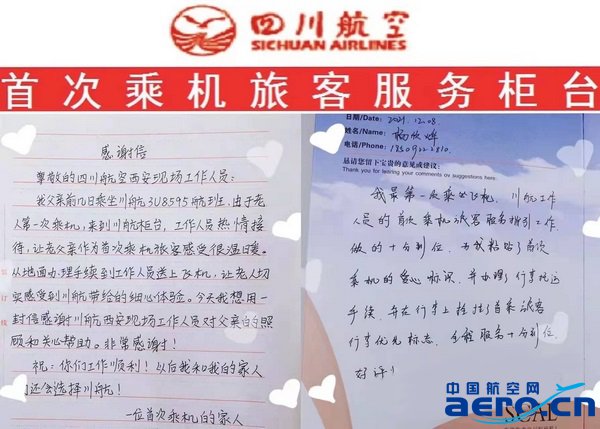 四川航空
SICHUAN AIRLINES
首次乘机旅客服务柜台
感谢信
尊敬的四川航空西安现场工作人员：
我父亲前几日乘坐川航3U8595航班，由于老
人第一次乘机，来到川航柜台，工作人员热情接
待，让老父亲作为首次乘机旅客感受很温暖。
从地面办理手续到工作人员送上飞机，让老人切
实感受到川航带给的细心体验。今天我想用一
封信感谢川航西安现场工作人员对父亲的照
顾和关心帮助。非常感谢！
祝：你们工作顺利！以后我和我的家人
们还会选择川航！
一位首次乘机的家人
日期/Date: 2021.12.08
姓名/Name: 杨欣烨
电话/Phone:
恳请您留下宝贵的意见或建议:
Thank you for leaving your comments or suggestions here:
我是第一次乘坐飞机，川航工作
人员的首次乘机旅客服务指引工作
做的十分到位，为我粘贴了首次
乘机的爱心标识，并办理了行李托运
手续，并在行李上拴挂了首乘旅客
行李优先标志，全程服务十分到位，
好评！
中国航空网
aero.cn
SCAL